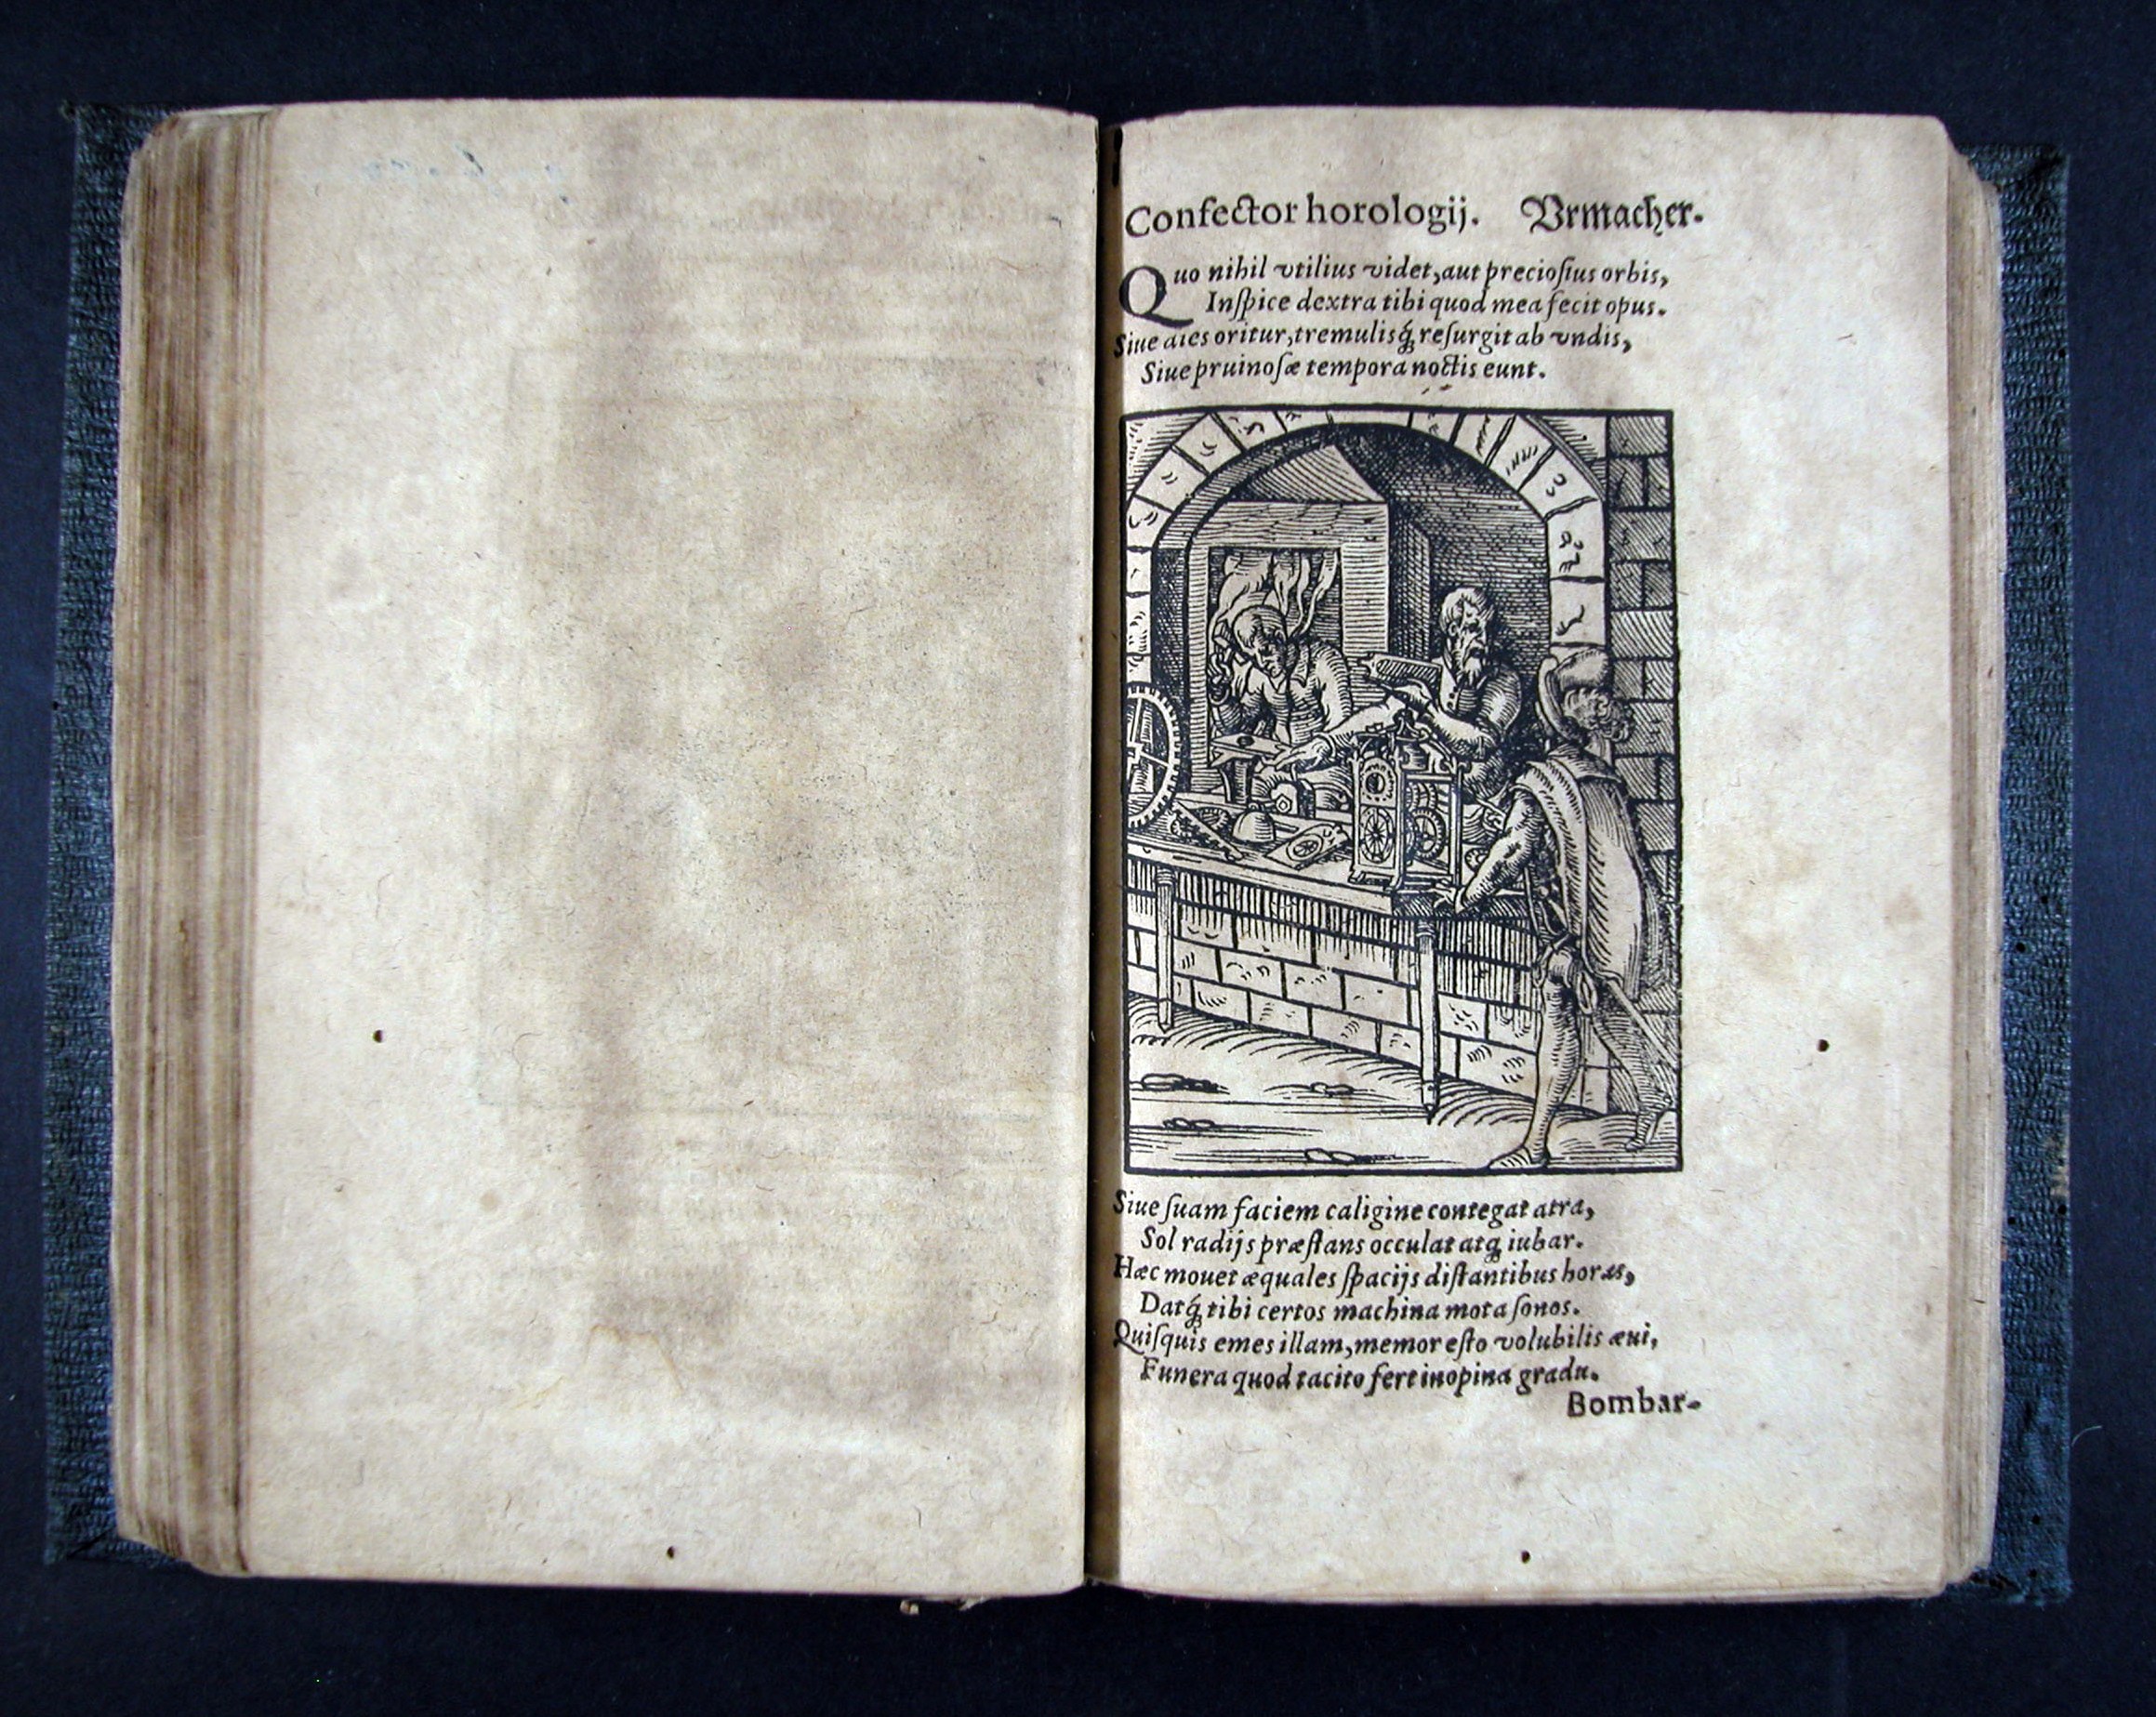 Confector horologij. Vrmacher.
Quo nihil vtilius videt, aut precioſius orbis,
Inſpice dextra tibi quod mea fecit opus.
Siue dies oritur, tremulisq́; reſurgit ab vndis,
Siue pruinoſæ tempora noctis eunt.
Siue ſuam faciem caligine contegat atra,
Sol radijs præſtans occulat atq; iubar.
Hæc mouet æquales ſpacijs diſtantibus horas,
Datq́; tibi certos machina mota ſonos.
Quiſquis emes illam, memor eſto volubilis æui,
Funera quod tacito fert inopina gradu.
Bombar-